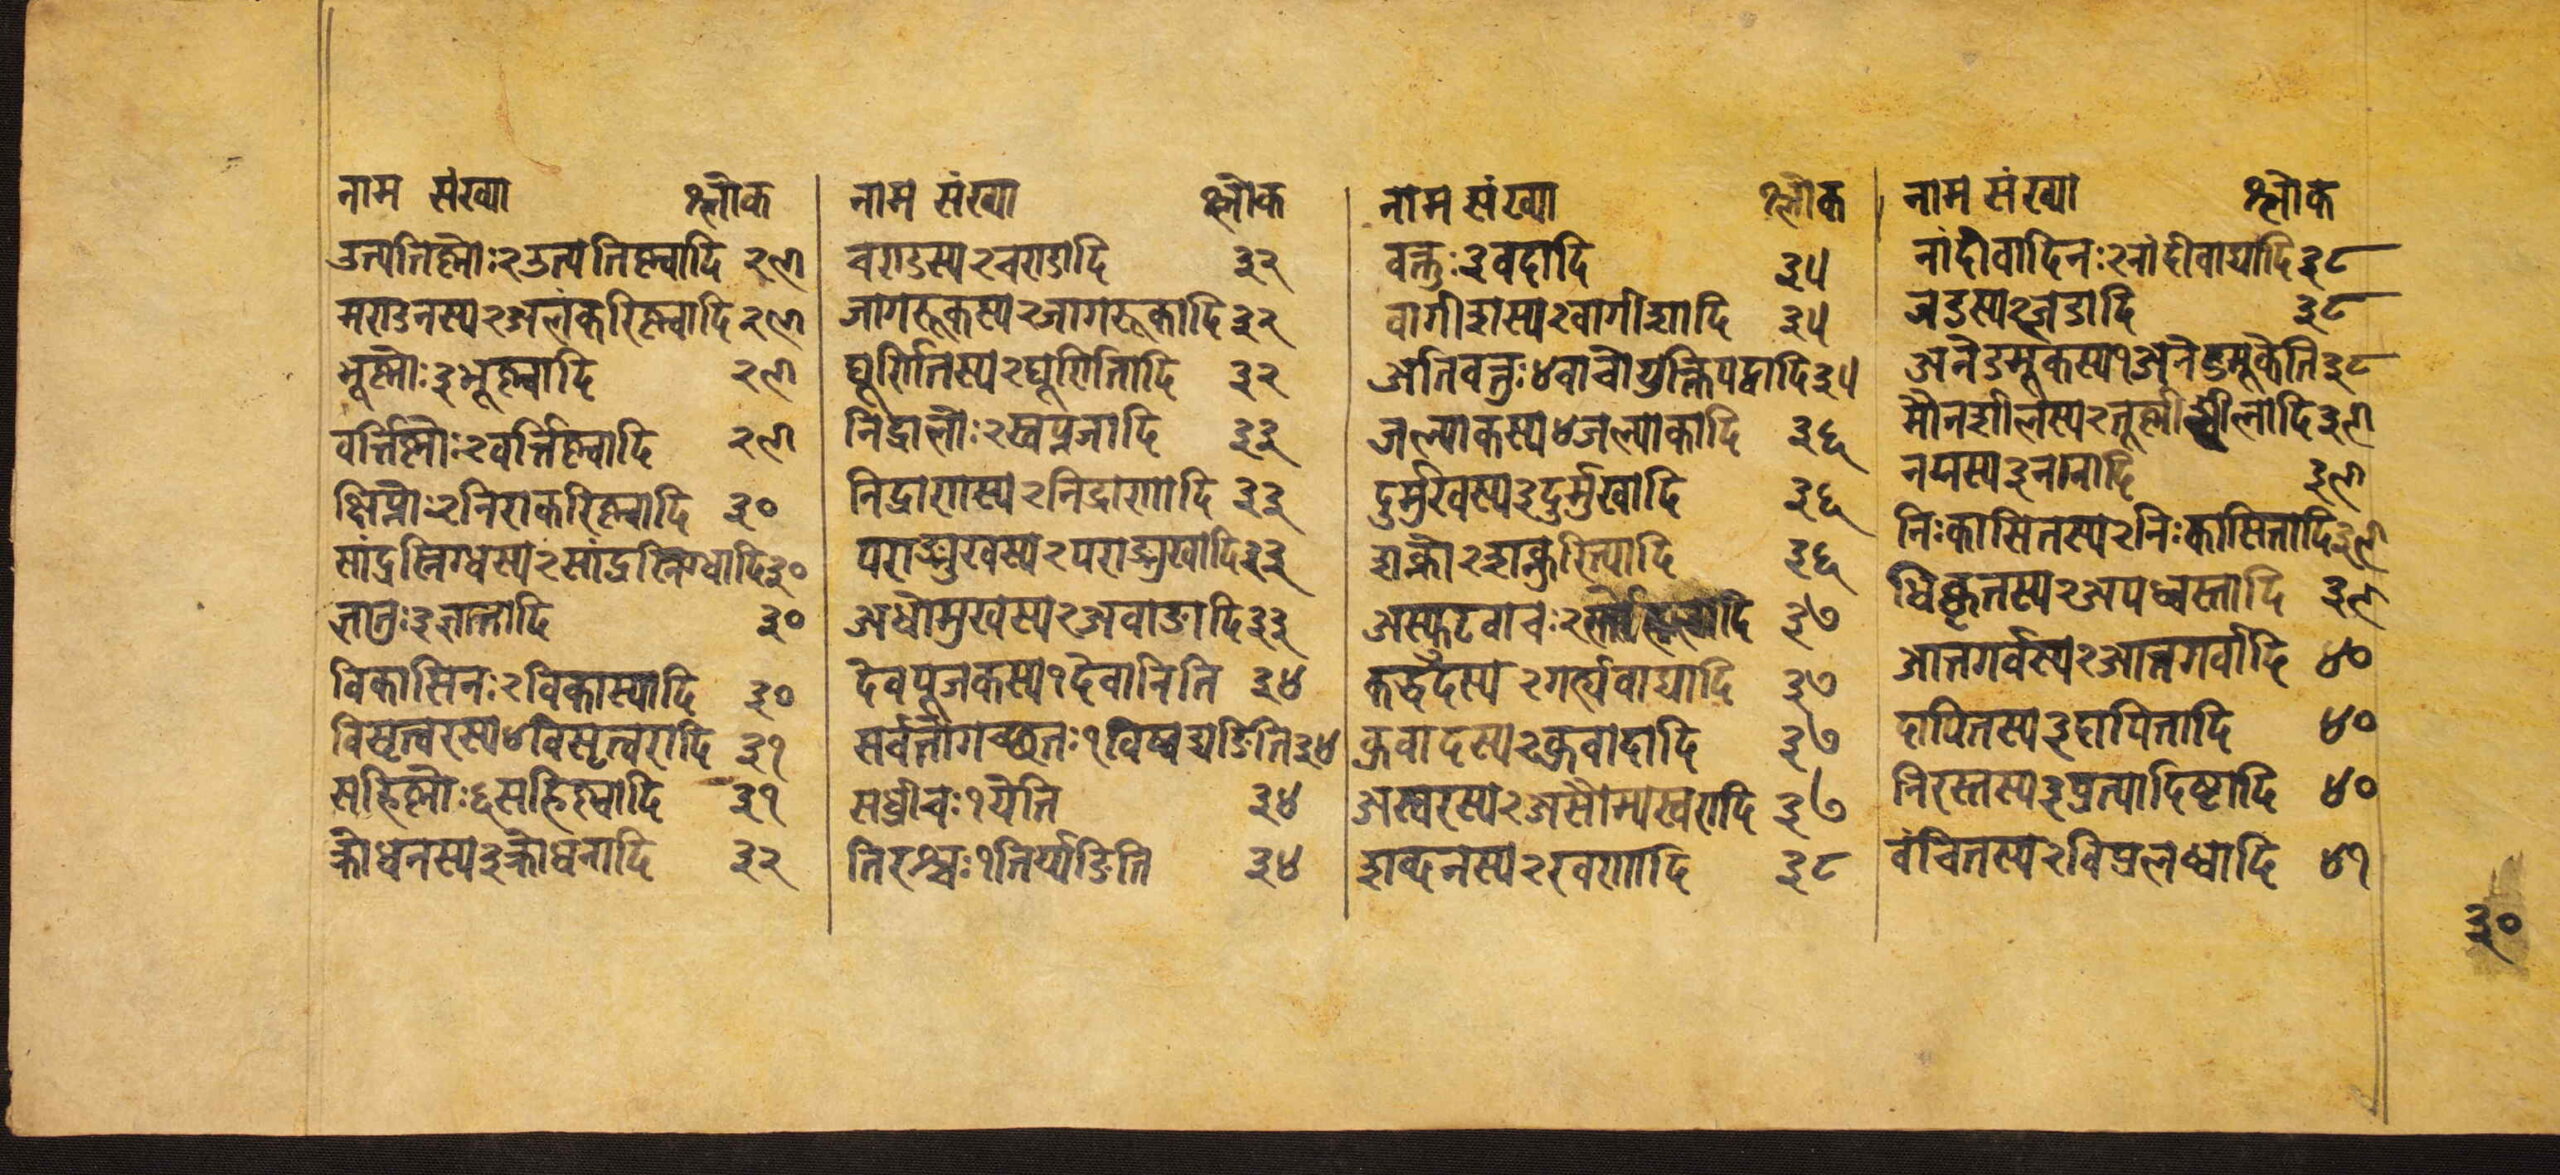 नाम संख्या श्लोक
उत्पतिष्णोः२उत्पतिष्ण्वादि २९
मण्डनस्य२अलंकरिष्ण्वादि २९
भूष्णोः३भूष्ण्वादि २९
वर्त्तिष्णोः२वर्त्तिष्ण्वादि २९
क्षिप्नोः२निराकरिष्ण्वादि ३०
सांद्रस्निग्धस्य२सांद्रस्निग्धादि ३०
ज्ञातुः३ज्ञात्रादि ३०
विकासिनः२विकास्यादि ३०
विसृत्वरस्य४विसृत्वरादि ३१
सहिष्णोः६सहिष्ण्वादि ३१
क्रोधनस्य३क्रोधनादि ३२
नाम संख्या श्लोक
चण्डस्य२चण्डादि ३२
जागरूकस्य२जागरूकादि ३२
घूर्णितस्य२घूर्णितादि ३२
निद्रालोः२स्वप्नजादि ३३
निद्राणस्य२निद्राणादि ३३
पराङ्मुखस्य२पराङ्मुखादि ३३
अधोमुखस्य२अवाङादि ३३
देवपूजकस्य१देवानिति ३४
सर्वतोगच्छतः१विष्वद्यङिति ३४
सध्रीचः१येति ३४
तिरश्चः१तिर्य्यङिति ३४
नाम संख्या श्लोक
वक्तुः३वदादि ३५
वागीशस्य२वागीशादि ३५
अतिवक्तुः४वाचोयुक्तिपट्वादि ३५
जल्पाकस्य४जल्पाकादि ३६
दुर्मुखस्य३दुर्मुखादि ३६
शक्नो२शक्नुरित्यादि ३६
अस्फुटवाचः२ ३७
कद्वदस्य २गर्ह्यवाद्यादि ३७
कुवादस्य२कुवादादि ३७
अस्वरस्य२असौम्यस्वरादि ३७
शब्दनस्य२रवणादि ३८
नाम संख्या श्लोक
नांदीवादिनः२नांदीवाद्यादि ३८
जडस्य२जडादि ३८
अनेडमूकस्य१अनेडमूकेति ३८
मौनशीलस्य२तूष्णींशीलादि ३९
नग्नस्य३नग्नादि ३९
निःकासितस्य२निःकासितादि ३९
धिक्कृतस्य२अपध्वस्तादि ३९
आत्तगर्वस्य२आत्तगर्वादि ४०
दापितस्य३दापितादि ४०
निरस्तस्य३प्रत्यादिष्टादि ४०
वंचितस्य२विप्रलब्धादि ४१
३०